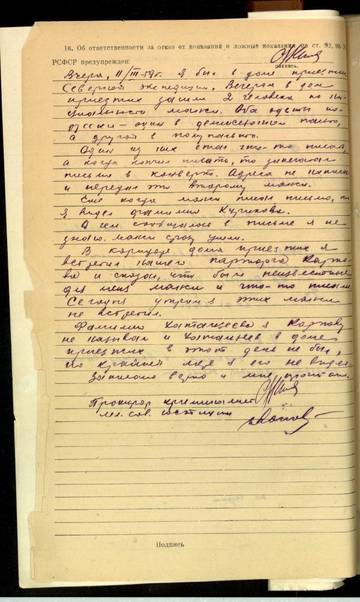 16. Об ответственности за отказ от показаний и ложные показания по ст. 92, 95
РСФСР предупрежден:
подпись.
Вчера, 11/III-59г. я был в доме приезжих
Северной экспедиции. Вечером в дом
приезжих зашли 2 человека по
манси. Оба одеты
один в демисезонном пальто,
а другой в полупальто.
Один из них стал что-то писал,
а когда кончил писать, то заклеил
письмо в конверт. Адреса не написал
и передал это второму манси.
Еще когда манси писал письмо, то
я видел фамилию Курикова.
А чем сообщалось в письме я не
знаю. манси сразу ушли.
В коридоре дома приезжих я
встретил нашего парторга
и сказал, что были неизвестные
для меня манси и что-то писали
Сегодня утром я этих манси
не встретил.
Фамилии я
не называл и в доме
приезжих в этот день не был,
по крайней мере я его не видел
Записано верно и мне прочитано.
Прокурор криминалист
мл. сов. юстиции
Подпись